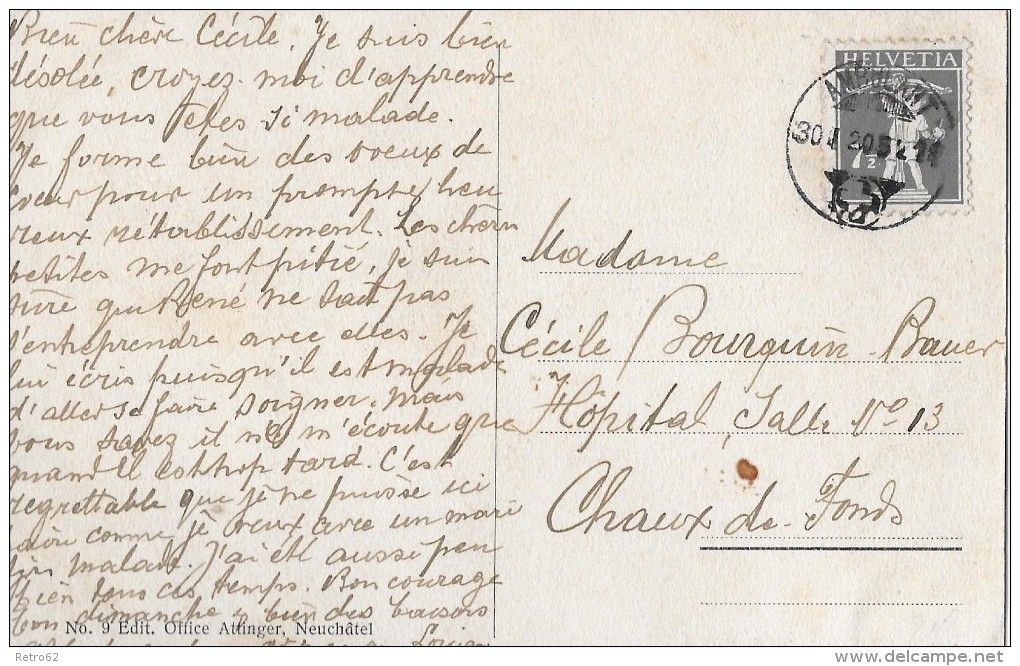 Bien chère Cécile, Je suis bien
désolée, croyez-moi d'apprendre
que vous êtes si malade.
Je forme bien des voeux de
coeur pour un prompte, heu
reux rétablissement. Les chères
petites me font pitié, je suis
sûre que René ne sait pas
s'entreprendre avec elles. Je
lui écris puisqu'il est malade
d'aller se faire soigner. Mais
vous savez il n'a m'écoute que
quand il est trop tard. C'est
regrettable que je ne puisse ici
faire comme je veux avec un mari
malade. J'ai été aussi peu
bien tous ces temps. Bon courage
bon dimanche & bien des baisers
No. 9 Edit. Office Attinger, Neuchâtel
HELVETIA
AMBULANT
7 1/2
Madame
Cécile Bourquin-Bauer
Hôpital, Salle No 13
Chaux-de-Fonds
Retro62
delcampe.net